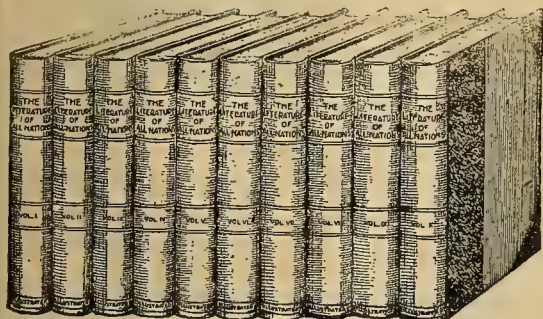 THE
LITERATURE
OF
ALL NATIONS
VOL I
ILLUSTRATED
THE
LITERATURE
OF
ALL NATIONS
VOL II
ILLUSTRATED
THE
LITERATURE
OF
ALL NATIONS
VOL III
ILLUSTRATED
THE
LITERATURE
OF
ALL NATIONS
VOL IV
ILLUSTRATED
THE
LITERATURE
OF
ALL NATIONS
VOL V
ILLUSTRATED
THE
LITERATURE
OF
ALL NATIONS
VOL VI
ILLUSTRATED
THE
LITERATURE
OF
ALL NATIONS
VOL VII
ILLUSTRATED
THE
LITERATURE
OF
ALL NATIONS
VOL VIII
ILLUSTRATED
THE
LITERATURE
OF
ALL NATIONS
VOL IX
ILLUSTRATED
THE
LITERATURE
OF
ALL NATIONS
VOL X
ILLUSTRATED